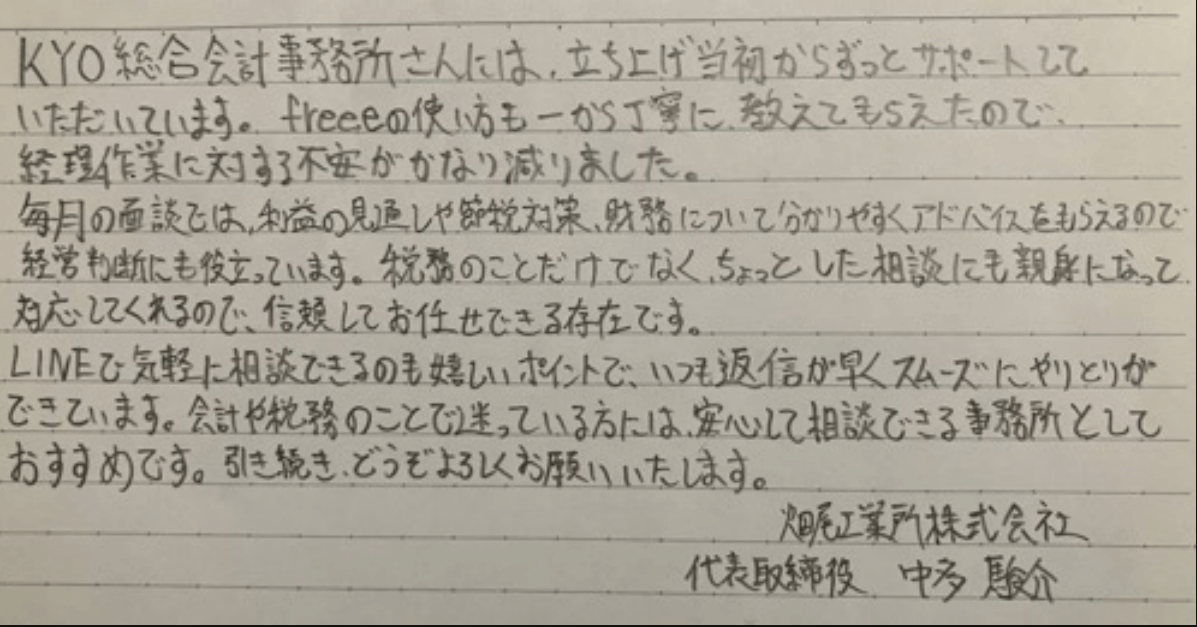 KYO総合会計事務所さんには、立ち上げ当初からずっとサポートして
いただいています。freeeの使い方も一から丁寧に、教えてもらえたので、
経理作業に対する不安がかなり減りました。
毎月の面談では、利益の見通しや節税対策、財務について分かりやすくアドバイスをもらえるので
経営判断にも役立っています。税務のことだけでなく、ちょっとした相談にも親身になって
対応してくれるので、信頼してお任せできる存在です。
LINEで気軽に相談できるのも嬉しいポイントで、いつも返信が早くスムーズにやりとりが
できています。会計や税務のことで迷っている方には、安心して相談できる事務所として
おすすめです。引き続き、どうぞよろしくお願いいたします。
畑尾工業所株式会社
代表取締役 中多 駿介